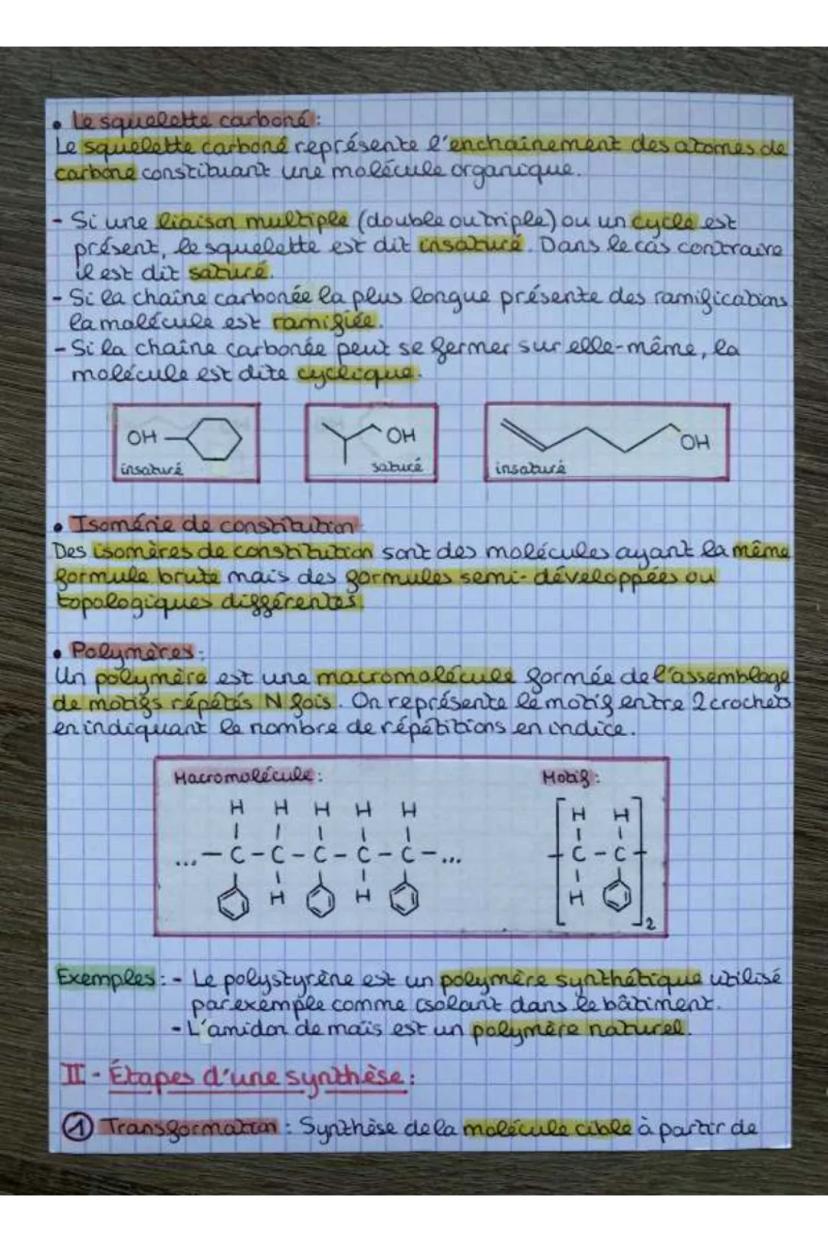 • Le squelette carboné :
Le squelette carboné représente l'enchaînement des atomes de
carbone constituant une molécule organique.
- Si une liaison multiple (double ou triple) ou un cycle est
présent, le squelette est dit insaturé. Dans le cas contraire
il est dit saturé.
- Si la chaîne carbonée la plus longue présente des ramifications
la molécule est ramifiée.
- Si la chaîne carbonée peut se fermer sur elle-même, la
molécule est dite cyclique.
OH OH OH
insaturé saturé insaturé
• Isomérie de constitution
Des isomères de constitution sont des molécules ayant la même
formule brute mais des formules semi-développées ou
topologiques différentes.
• Polymères :
Un polymère est une macromolécule formée de l'assemblage
de motifs répétés N fois. On représente le motif entre 2 crochets
en indiquant le nombre de répétitions en indice.
Macromolécule : Motif :
H H H H H H H
... - C - C - C - C - C - ... C - C
H H H
2
Exemples : - Le polystyrène est un polymère synthétique utilisé
par exemple comme isolant dans le bâtiment.
- L'amidon de maïs est un polymère naturel.
II - Étapes d'une synthèse :
1 Transformation : Synthèse de la molécule cible à partir de